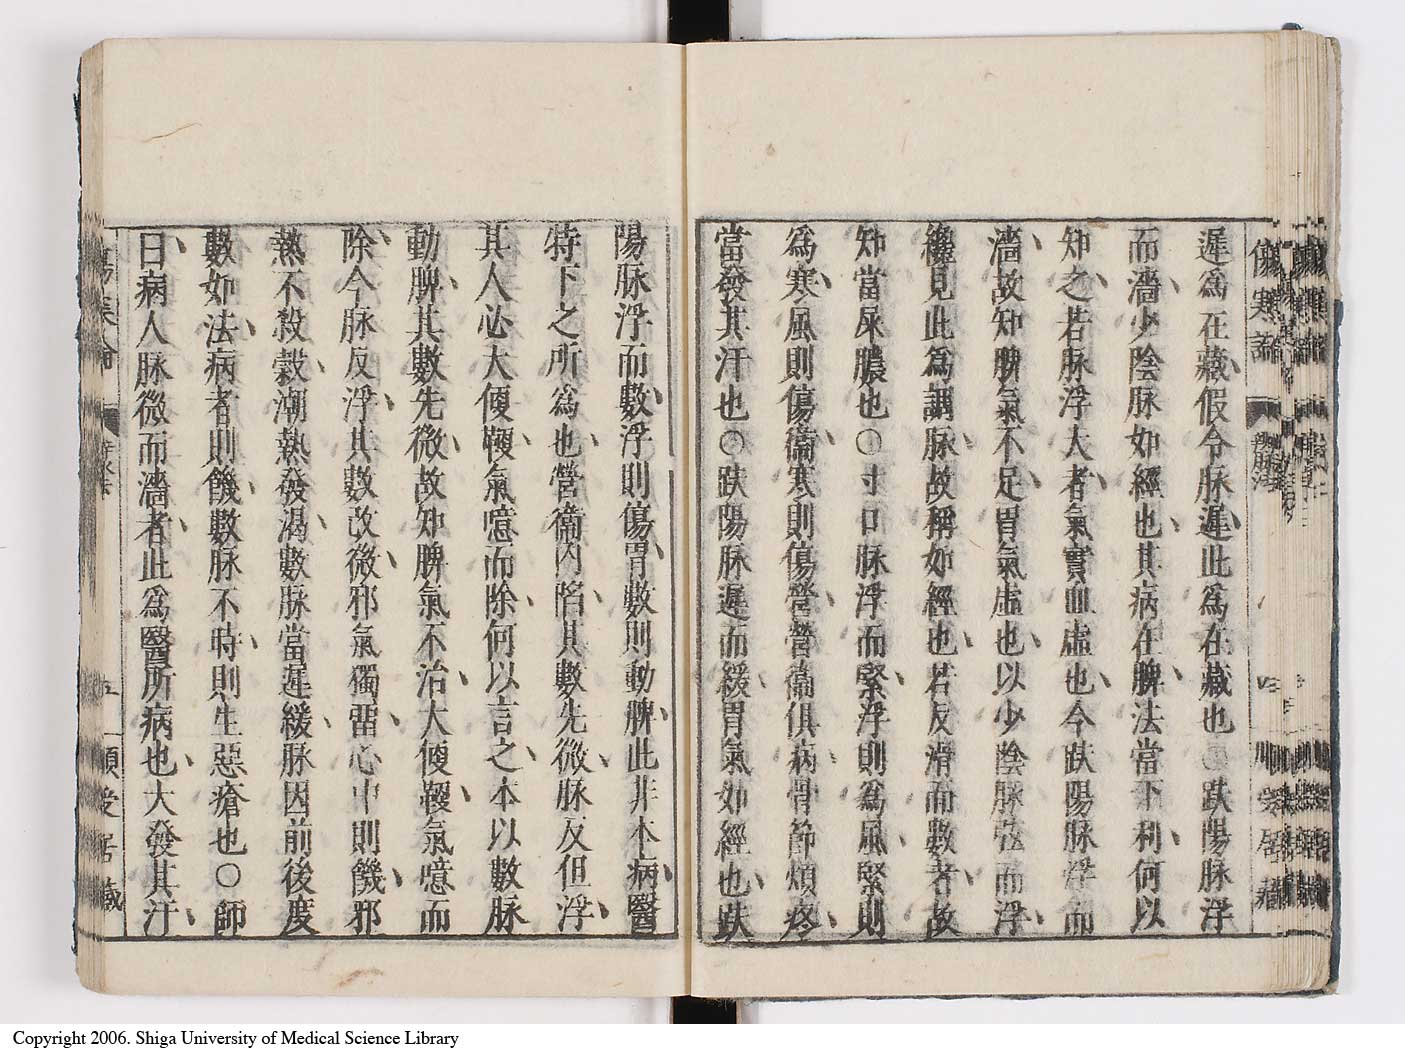 遲爲在藏假令脉遲此爲在藏也〇趺陽脉浮
而濇少陰脉如經也其病在脾法當下利何以
知之若脉浮大者氣實血虛也今趺陽脉浮而
濇故知脾氣不足胃氣虛也以少陰脉弦而浮
纔見此爲調脉故稱如經也若反滑而數者故
知當屎膿也〇寸口脉浮而緊浮則爲風緊則
爲寒風則傷衞寒則傷營營衞俱病骨節煩疼
當發其汗也〇趺陽脉遲而緩胃氣如經也趺
傷寒論
陽脉浮而數浮則傷胃數則動脾此非本病醫
特下之所爲也營衞內陷其數先微脉反但浮
其人必大便鞕氣噫而除何以言之本以數脉
動脾其數先微故知脾氣不治大便鞕氣噫而
除今脉反浮其數改微邪氣獨畱心中則饑邪
熱不殺穀潮熱發渴數脉當遲緩脉因前後度
數如法病者則饑數脉不時則生惡瘡也〇師
曰病人脉微而濇者此爲醫所病也大發其汗
Copyright 2006. Shiga University of Medical Science Library